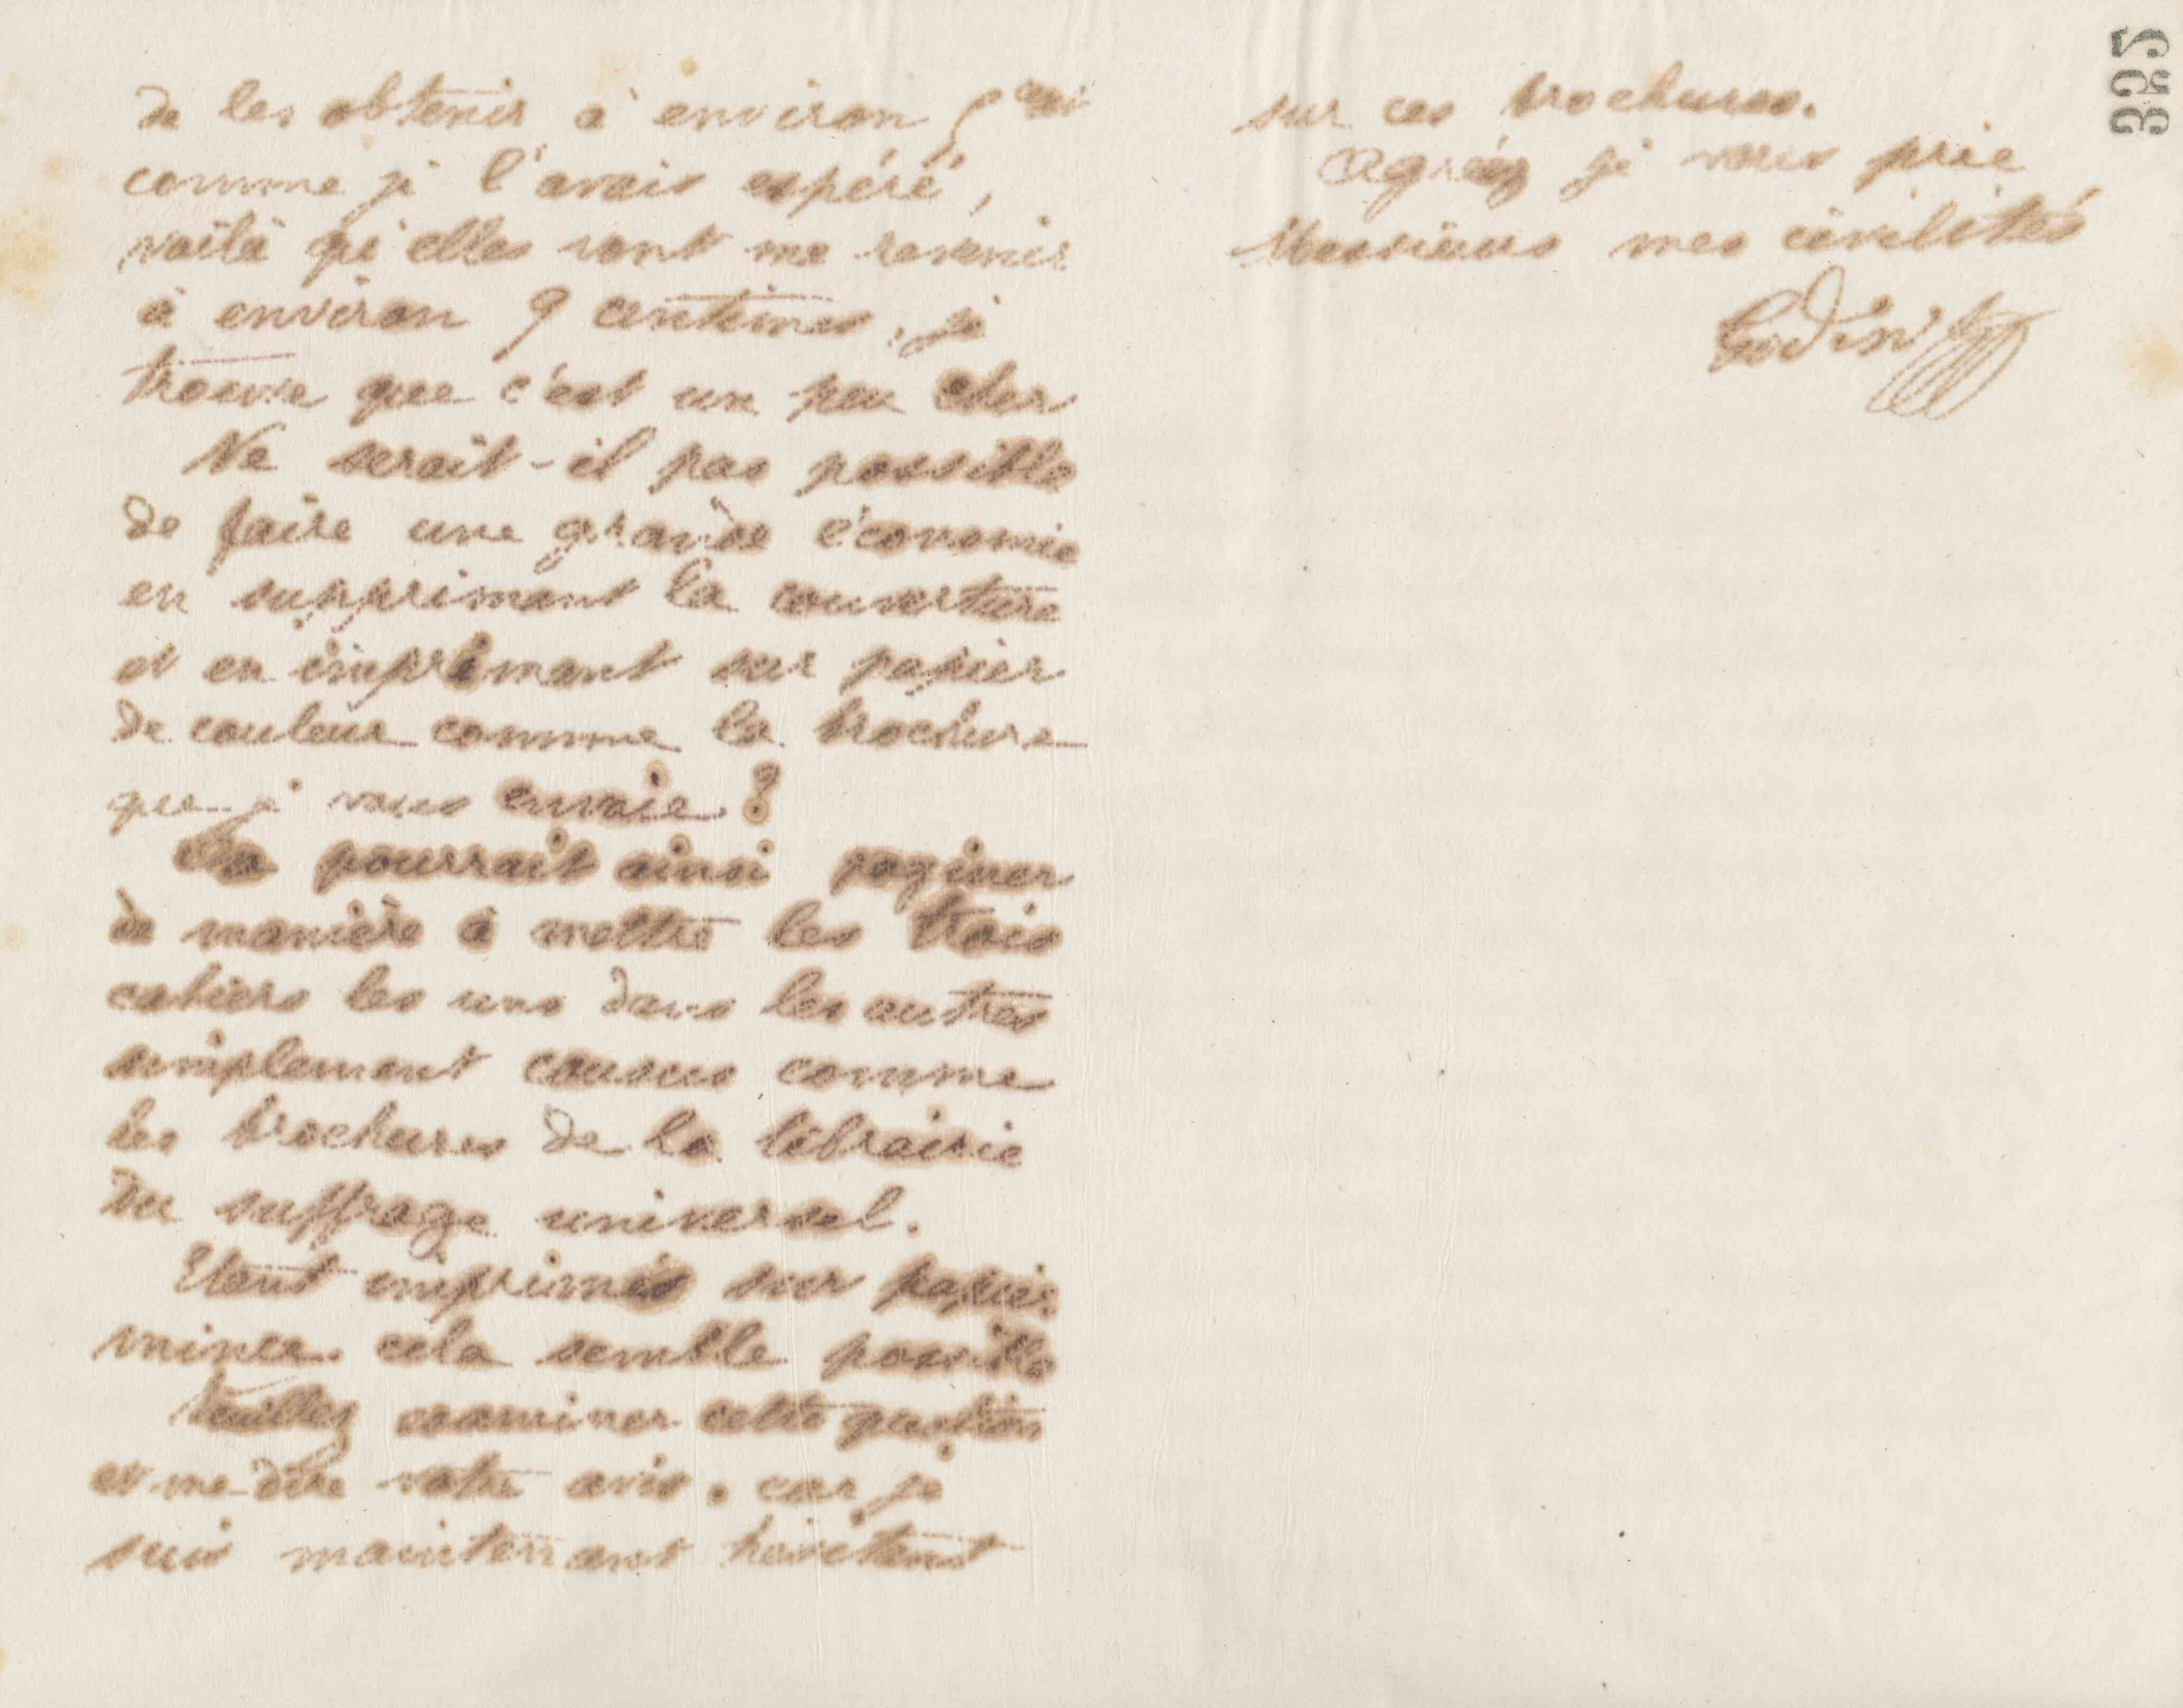 de les obtenir à environ 5 ces
comme je l'avais espéré,
voilà qu'elles vont me revenir
à environ 9 centimes, je
trouve que c'est un peu cher
Ne serait-il pas possible
de faire une grande économie
en supprimant la couverture
et en imprimant sur papier
de couleur comme la brochure
que je vous envoie ?
On pourrait ainsi paginer
de manière à mettre les trois
cahiers les uns dans les autres
simplement cousus comme
les brochures de la librairie
du suffrage universel.
Etant imprimés sur papier
mince cela semble possible
Veuillez examiner cette question
et me dire votre avis. car je
suis maintenant hésitant
325
sur ces brochures.
Agréez je vous prie
Messieurs mes civilités
Godin